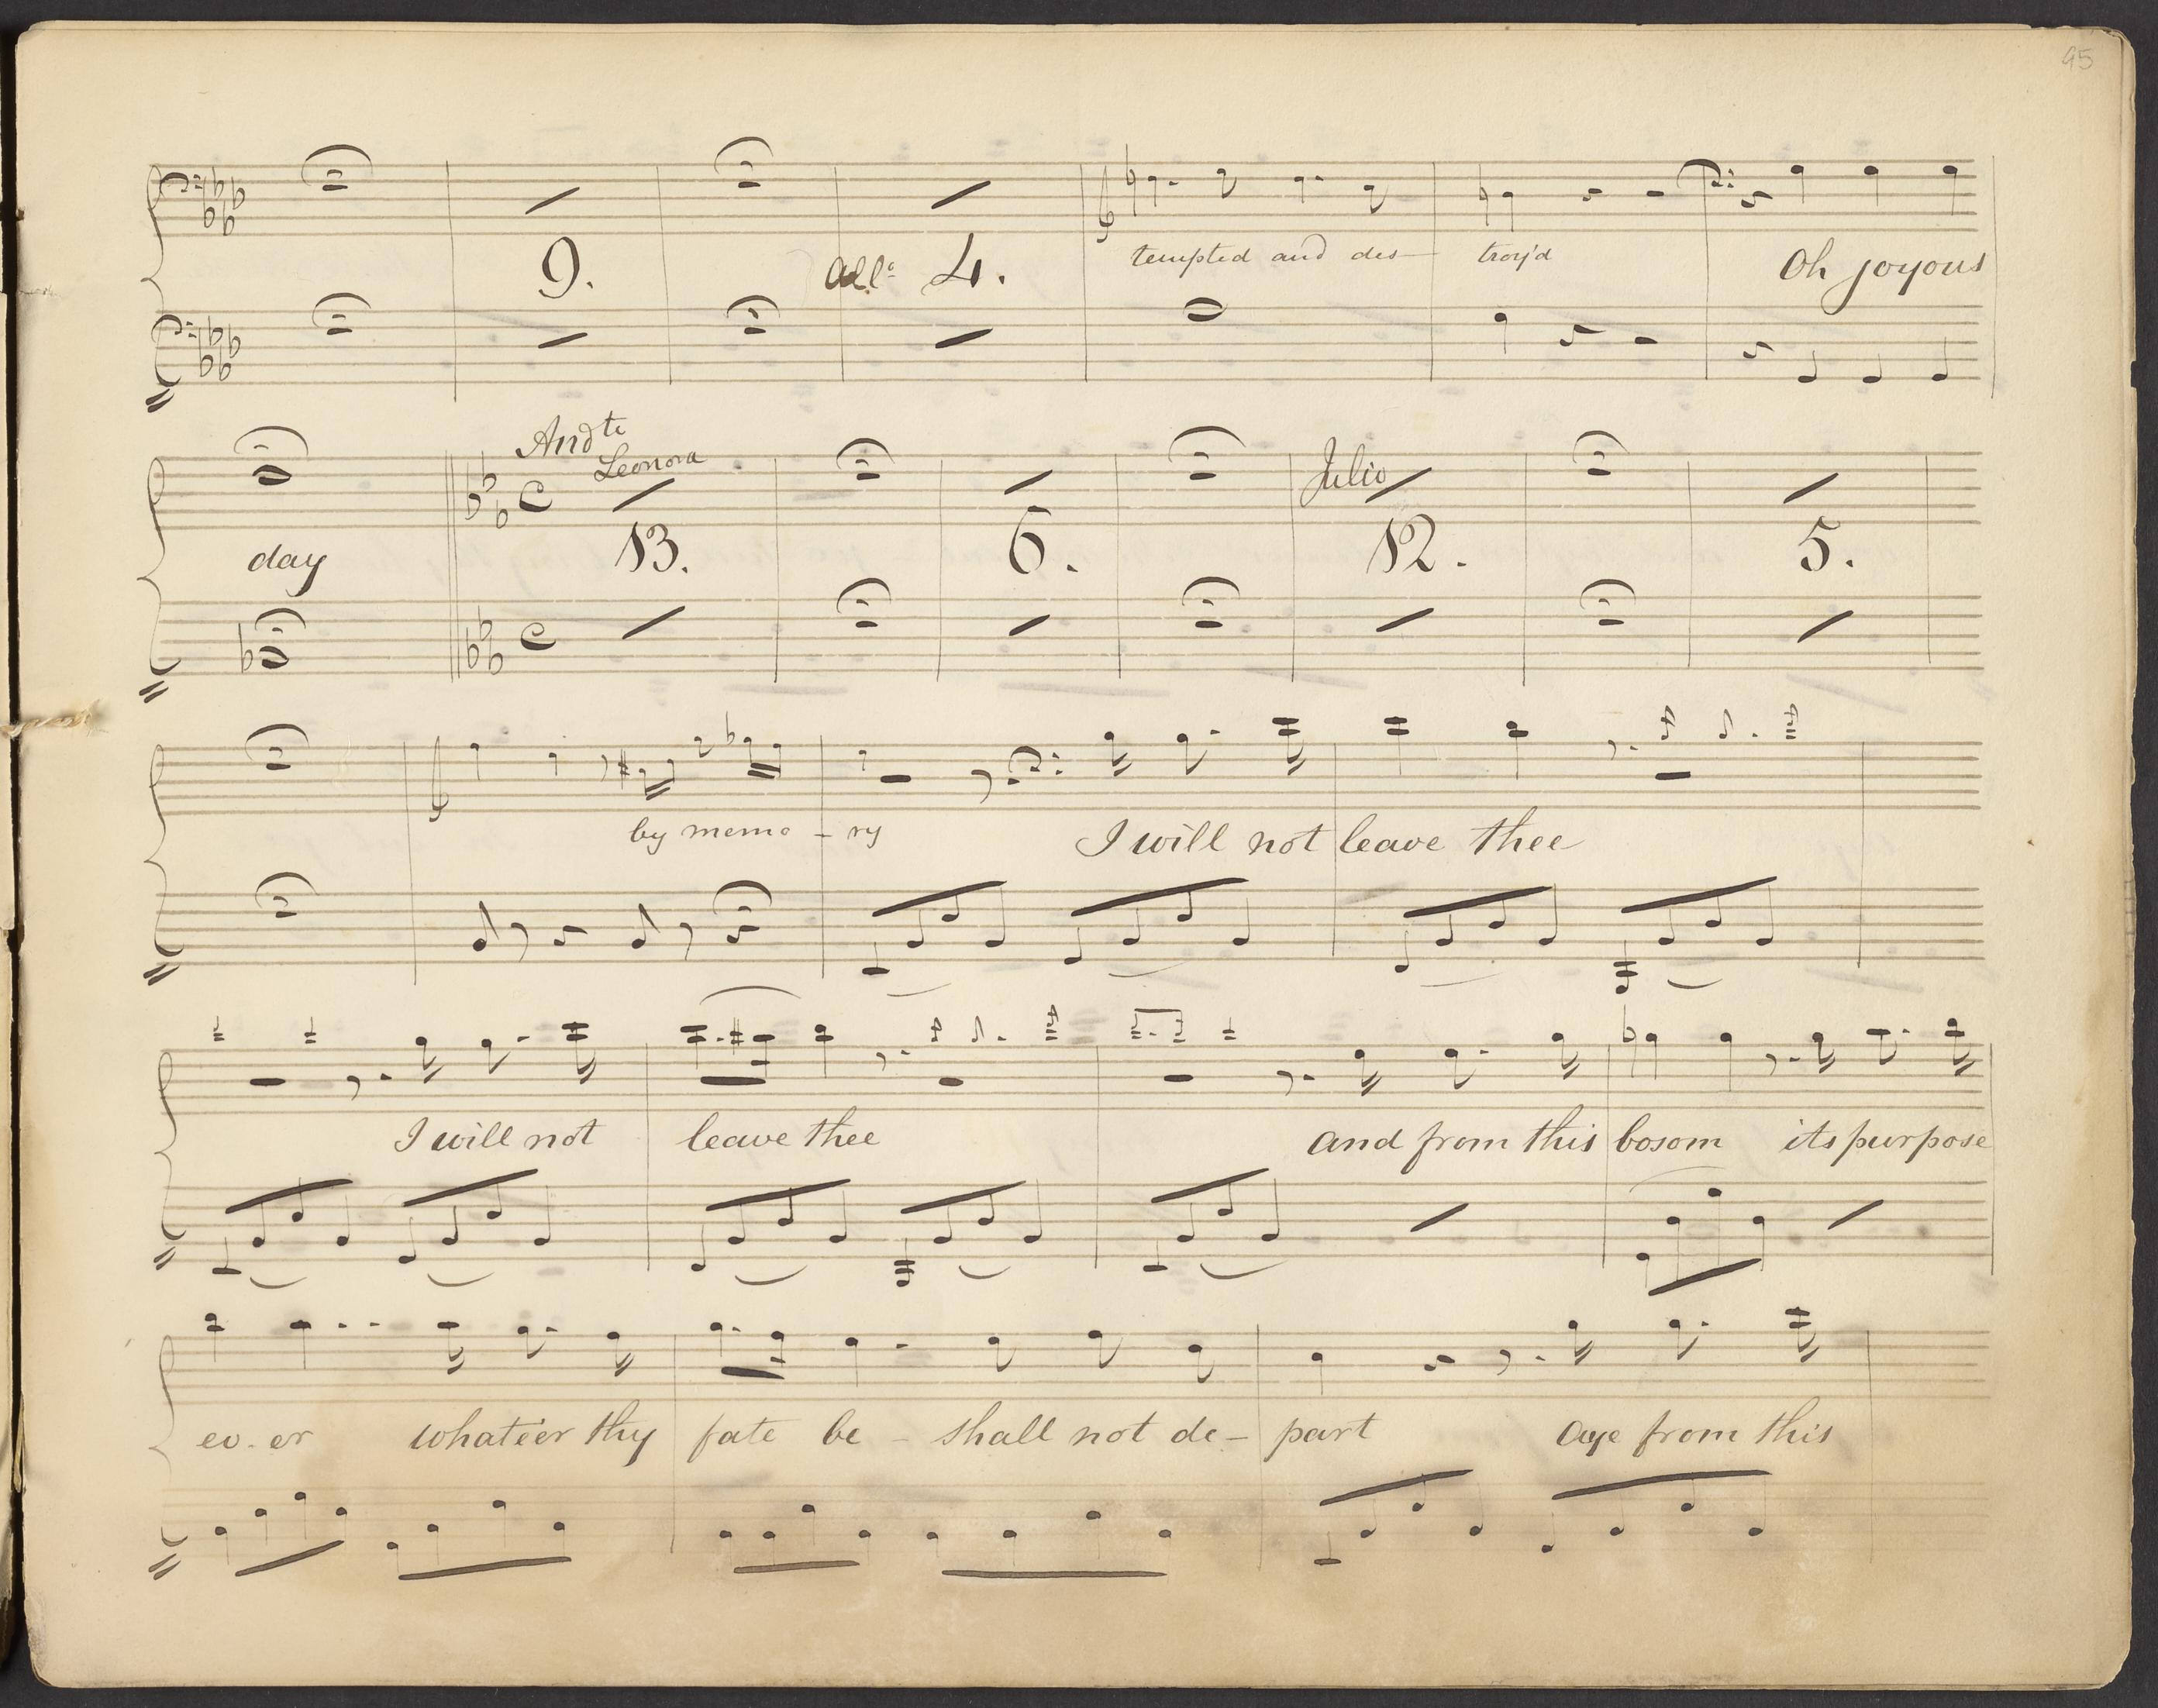 95
9. All° 4. tempted and des- troy'd Oh joyous
Andte
Leonora Julio
day 13. 6. 12. 5.
by memo - ry I will not leave thee
I will not leave thee and from this bosom its purpose
ev-er whate'er thy fate be - shall not de- part aye from this